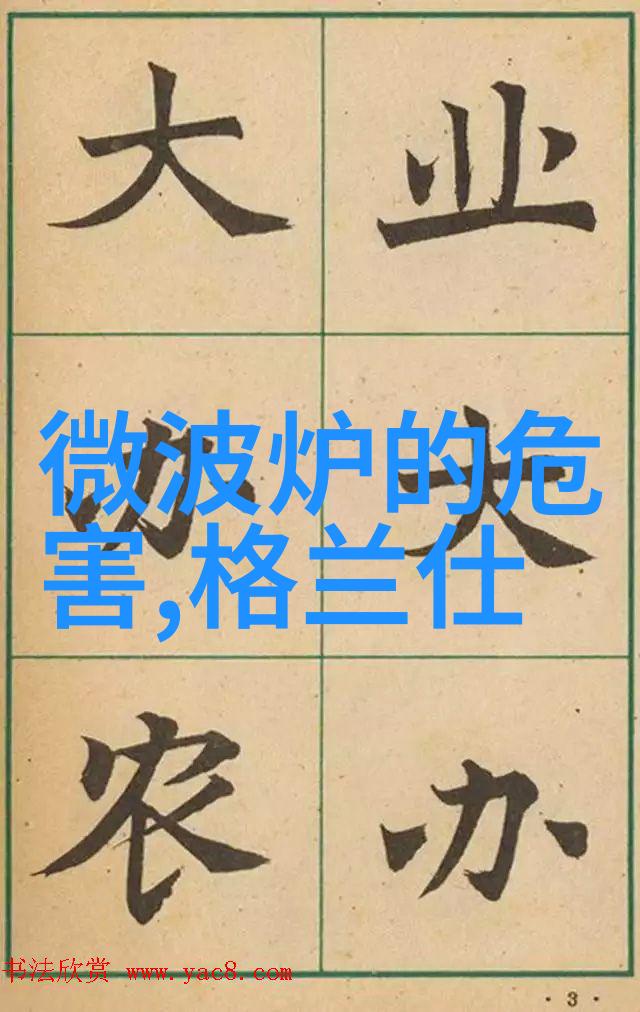 大办农
业大办
微波炉的危
害,格兰仕
书法欣赏 www.yac8.com
·3·